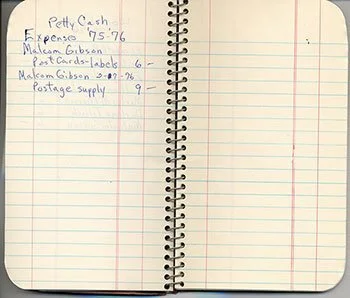 Petty Cash
Expenses '75-'76
Malcom Gibson
Post Cards-labels 6 –
Malcom Gibson 2-27-76
Postage supply 9 –